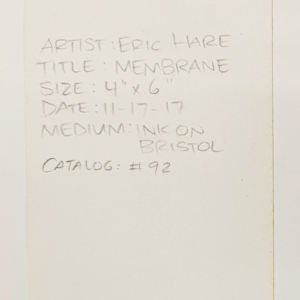 ARTIST: ERIC HARE
TITLE: MEMBRANE
SIZE: 4" x 6"
DATE: 11-17-17
MEDIUM: INK ON
BRISTOL
CATALOG: #92